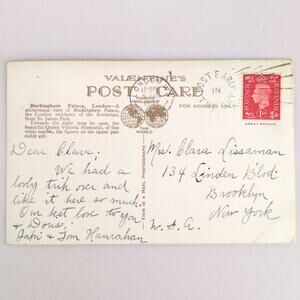 VALENTINE'S
POST CARD
FOR ADDRESS ONLY
Buckingham Palace, London—A
picturesque view of Buckingham Palace,
the London residence of the Sovereign,
from St. James Park.
Towards the right may be seen the
beautiful Queen Victoria Memorial, of fine
white marble, the figures on the upper part
gold.
THIS IS A REAL PHOTOGRAPH
POST EARLY
IN
REVENUE
1D
GREAT BRITAIN
Dear Clara.
We had a
lovely trip over and
like it here so much.
Our best love to you
& Doris.
Tom Hanrahan
Mrs. Clara Lissaman
134 Linden Blvd.
Brooklyn
New York
U.S.A.